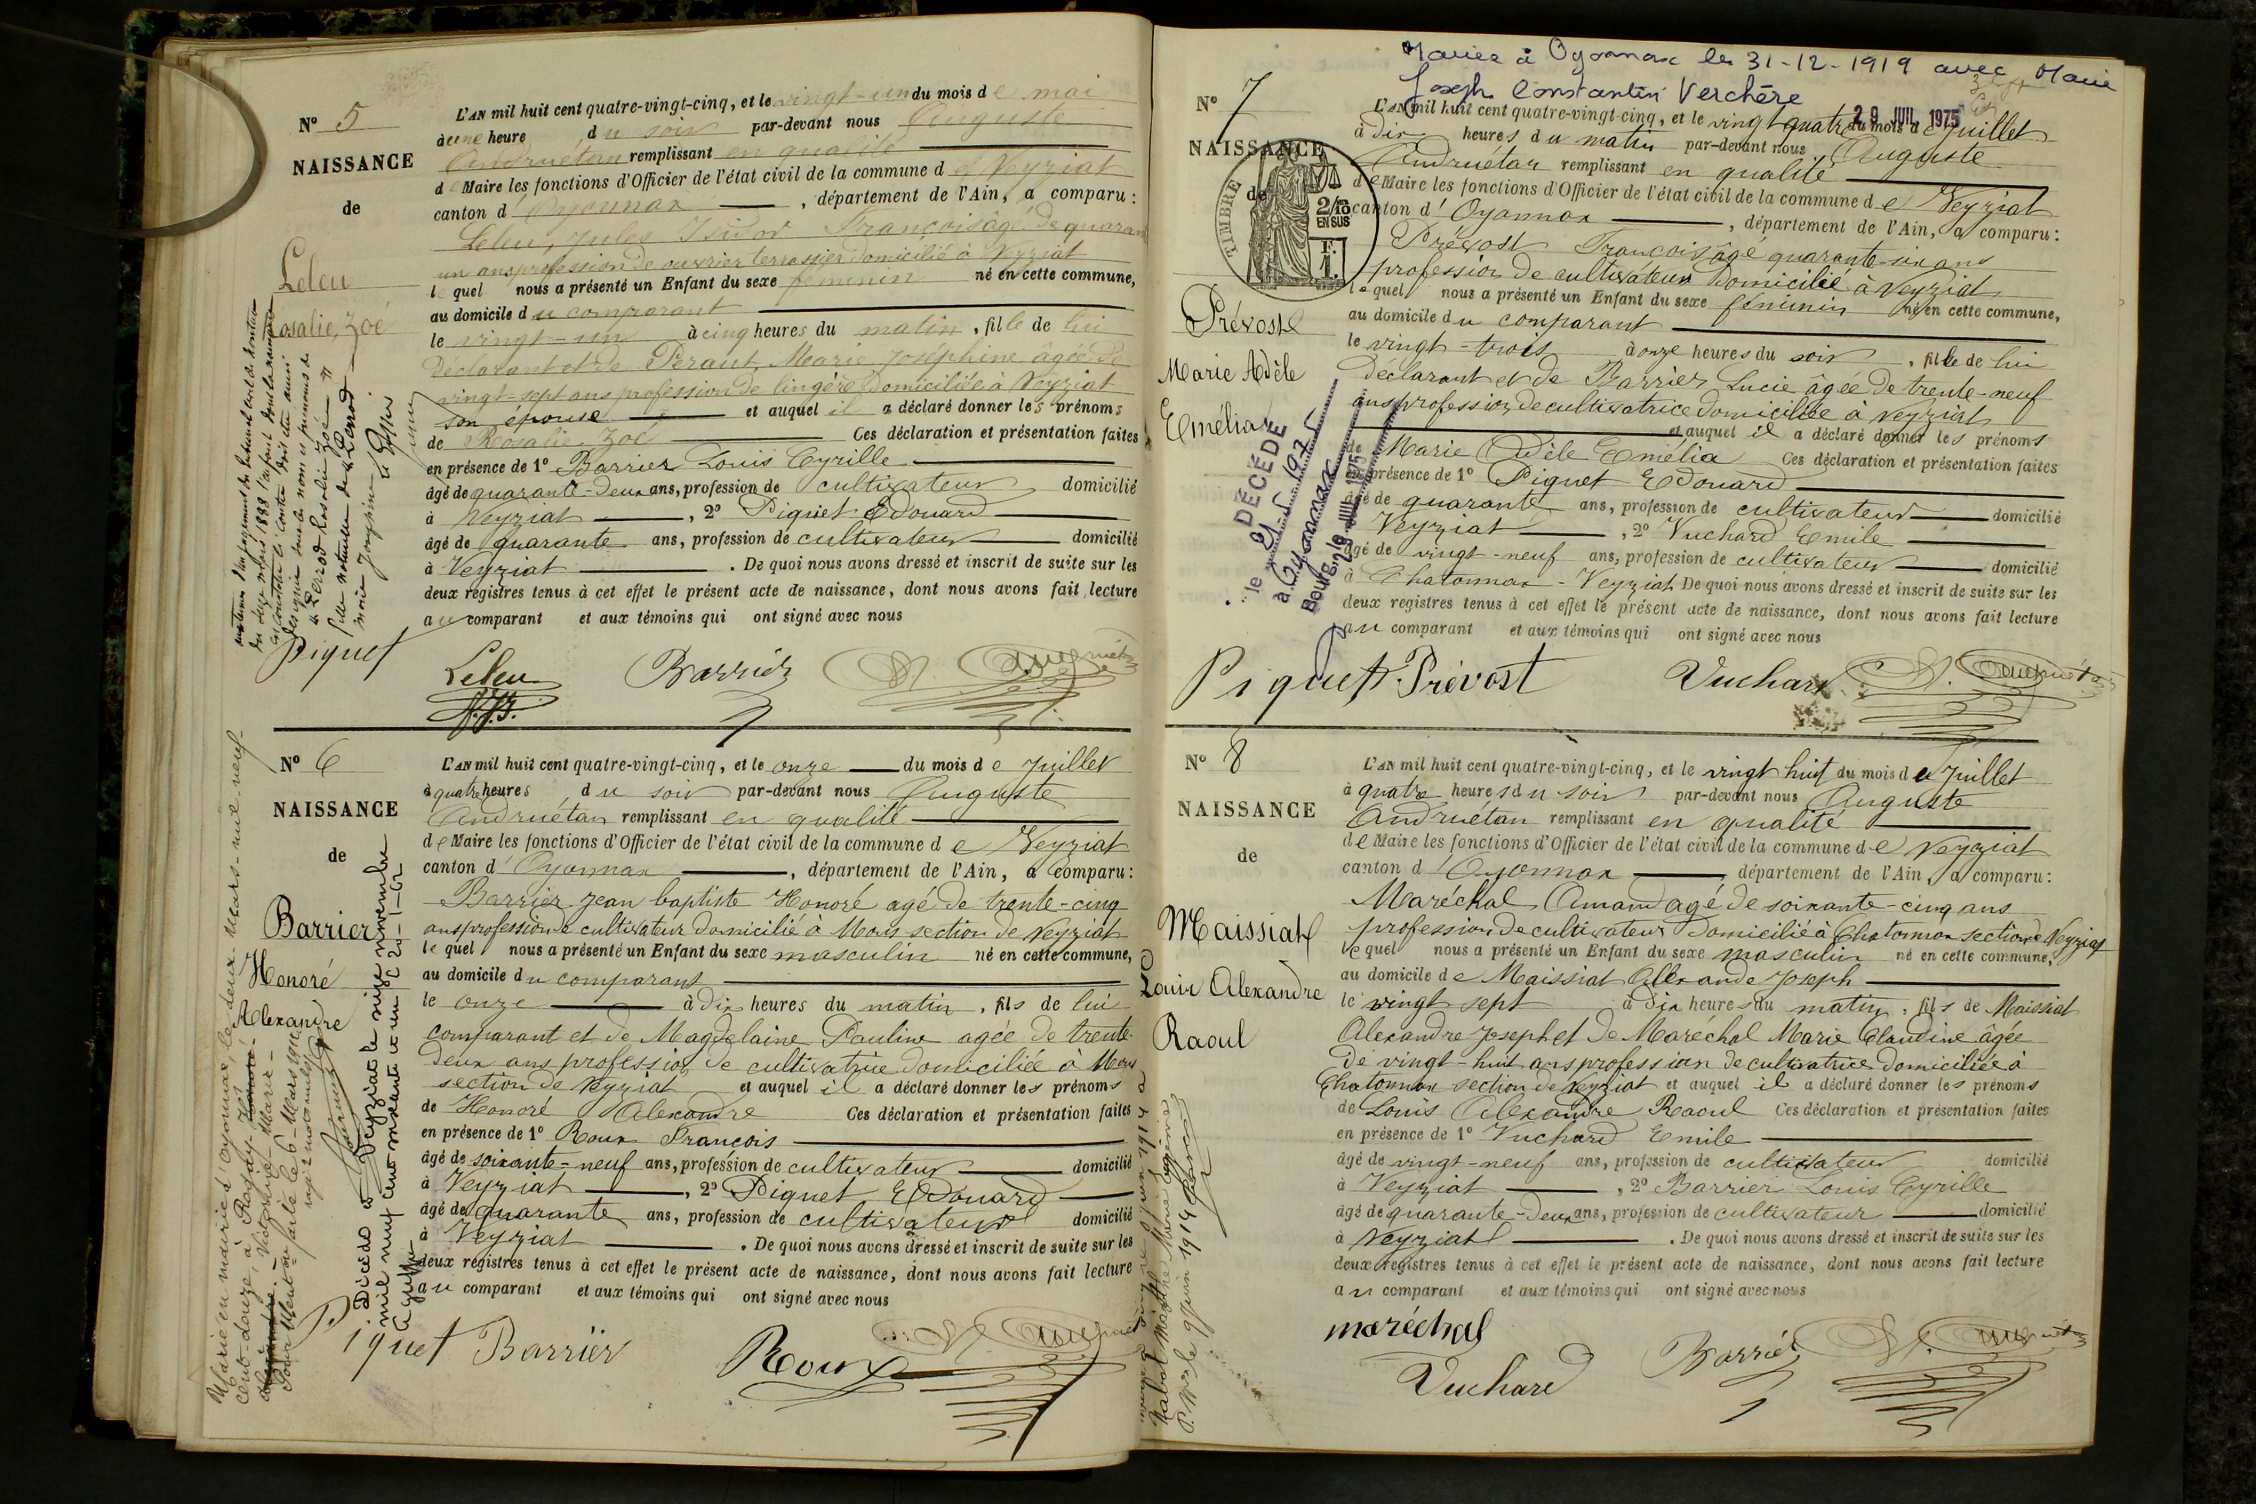 N° 5
NAISSANCE
de
Leleu
Rosalie, Zoé
L'AN mil huit cent quatre-vingt-cinq, et le vingt-un du mois de mai
à une heure du soir par-devant nous Auguste
Andruétan remplissant en qualité
de Maire les fonctions d'Officier de l'état civil de la commune de Veyziat
canton d'Oyonnax, département de l'Ain, a comparu :
Leleu, Jules Isidor François âgé de quarante
un ans profession de ouvrier terrassier domicilié à Veyziat
lequel nous a présenté un Enfant du sexe féminin né en cette commune,
au domicile du comparant
le vingt-un à cinq heures du matin, fille de lui
déclarant et de Peraut, Marie Joséphine âgée de
vingt-sept ans profession de lingère domiciliée à Veyziat
son épouse et auquel il a déclaré donner les prénoms
de Rosalie Zoé Ces déclaration et présentation faites
en présence de 1° Barrier Louis Cyrille
âgé de quarante-deux ans, profession de cultivateur domicilié
à Veyziat, 2° Piquet Edouard
âgé de quarante ans, profession de cultivateur domicilié
à Veyziat. De quoi nous avons dressé et inscrit de suite sur les
deux registres tenus à cet effet le présent acte de naissance, dont nous avons fait lecture
au comparant et aux témoins qui ont signé avec nous
Piquet Leleu Barrier
N° 6
NAISSANCE
de
Barrier
Honoré
Alexandre
Marié en mairie d'Oyonnax, le deux Mars mil neuf
cent-douze, à
Pour Mention faite le 6 Mars 1912
Décédé à Veyziat le seize novembre
mil neuf cent soixante et un 20-1-62
L'AN mil huit cent quatre-vingt-cinq, et le onze du mois de Juillet
à quatre heures du soir par-devant nous Auguste
Andruétan remplissant en qualité
de Maire les fonctions d'Officier de l'état civil de la commune de Veyziat
canton d'Oyonnax, département de l'Ain, a comparu :
Barrier Jean baptiste Honoré agé de trente-cinq
ans profession de cultivateur domicilié à Mons section de Veyziat
lequel nous a présenté un Enfant du sexe masculin né en cette commune,
au domicile du comparant
le onze à dix heures du matin, fils de lui
comparant et de Magdelaine Pauline agée de trente
deux ans profession de cultivatrice domiciliée à Mons
section de Veyziat et auquel il a déclaré donner les prénoms
de Honoré Alexandre Ces déclaration et présentation faites
en présence de 1° Roux François
âgé de soixante-neuf ans, profession de cultivateur domicilié
à Veyziat, 2° Piquet Edouard
âgé de quarante ans, profession de cultivateur domicilié
à Veyziat. De quoi nous avons dressé et inscrit de suite sur les
deux registres tenus à cet effet le présent acte de naissance, dont nous avons fait lecture
au comparant et aux témoins qui ont signé avec nous
Piquet Barrier Roux
Mariée à Oyonnax le 31-12-1919 avec Marie
Joseph Constantin Verchère
29 JUIL 1975
N° 7
NAISSANCE
de
TIMBRE
2/10
EN SUS
1F.
Prévost
Marie Adèle
Emélia
DÉCÉDÉ
le 21-5-1975
à Oyonnax
L'AN mil huit cent quatre-vingt-cinq, et le vingt quatre du mois de Juillet
à dix heures du matin par-devant nous Auguste
Andruétan remplissant en qualité
de Maire les fonctions d'Officier de l'état civil de la commune de Veyziat
canton d'Oyonnax, département de l'Ain, a comparu :
Prévost François âgé quarante-six ans
profession de cultivateur domicilié à Veyziat
lequel nous a présenté un Enfant du sexe féminin né en cette commune,
au domicile du comparant
le vingt-trois à onze heures du soir, fille de lui
déclarant et de Barrier Lucie âgée de trente-neuf
ans profession de cultivatrice domiciliée à Veyziat
et auquel il a déclaré donner les prénoms
de Marie Adèle Emélia Ces déclaration et présentation faites
en présence de 1° Piquet Edouard
âgé de quarante ans, profession de cultivateur domicilié
à Veyziat, 2° Vuchard Emile
âgé de vingt-neuf ans, profession de cultivateur domicilié
à Chatonnax-Veyziat De quoi nous avons dressé et inscrit de suite sur les
deux registres tenus à cet effet le présent acte de naissance, dont nous avons fait lecture
au comparant et aux témoins qui ont signé avec nous
Piquet Prévost Vuchard
N° 8
NAISSANCE
de
Maissiat
Louis Alexandre
Raoul
L'AN mil huit cent quatre-vingt-cinq, et le vingt huit du mois de Juillet
à quatre heures du soir par-devant nous Auguste
Andruétan remplissant en qualité
de Maire les fonctions d'Officier de l'état civil de la commune de Veyziat
canton d'Oyonnax, département de l'Ain, a comparu :
Maréchal Amand agé de soixante-cinq ans
profession de cultivateur domicilié à Chatonnax section de Veyziat
lequel nous a présenté un Enfant du sexe masculin né en cette commune,
au domicile de Maissiat Alexandre Joseph
le vingt sept à dix heures du matin, fils de Maissiat
Alexandre Joseph et de Maréchal Marie Claudine âgée
de vingt-huit ans profession de cultivatrice domiciliée à
Chatonnax section de Veyziat et auquel il a déclaré donner les prénoms
de Louis Alexandre Raoul Ces déclaration et présentation faites
en présence de 1° Vuchard Emile
âgé de vingt-neuf ans, profession de cultivateur domicilié
à Veyziat, 2° Barrier Louis Cyrille
âgé de quarante-deux ans, profession de cultivateur domicilié
à Veyziat. De quoi nous avons dressé et inscrit de suite sur les
deux registres tenus à cet effet le présent acte de naissance, dont nous avons fait lecture
au comparant et aux témoins qui ont signé avec nous
maréchal
Vuchard Barrier